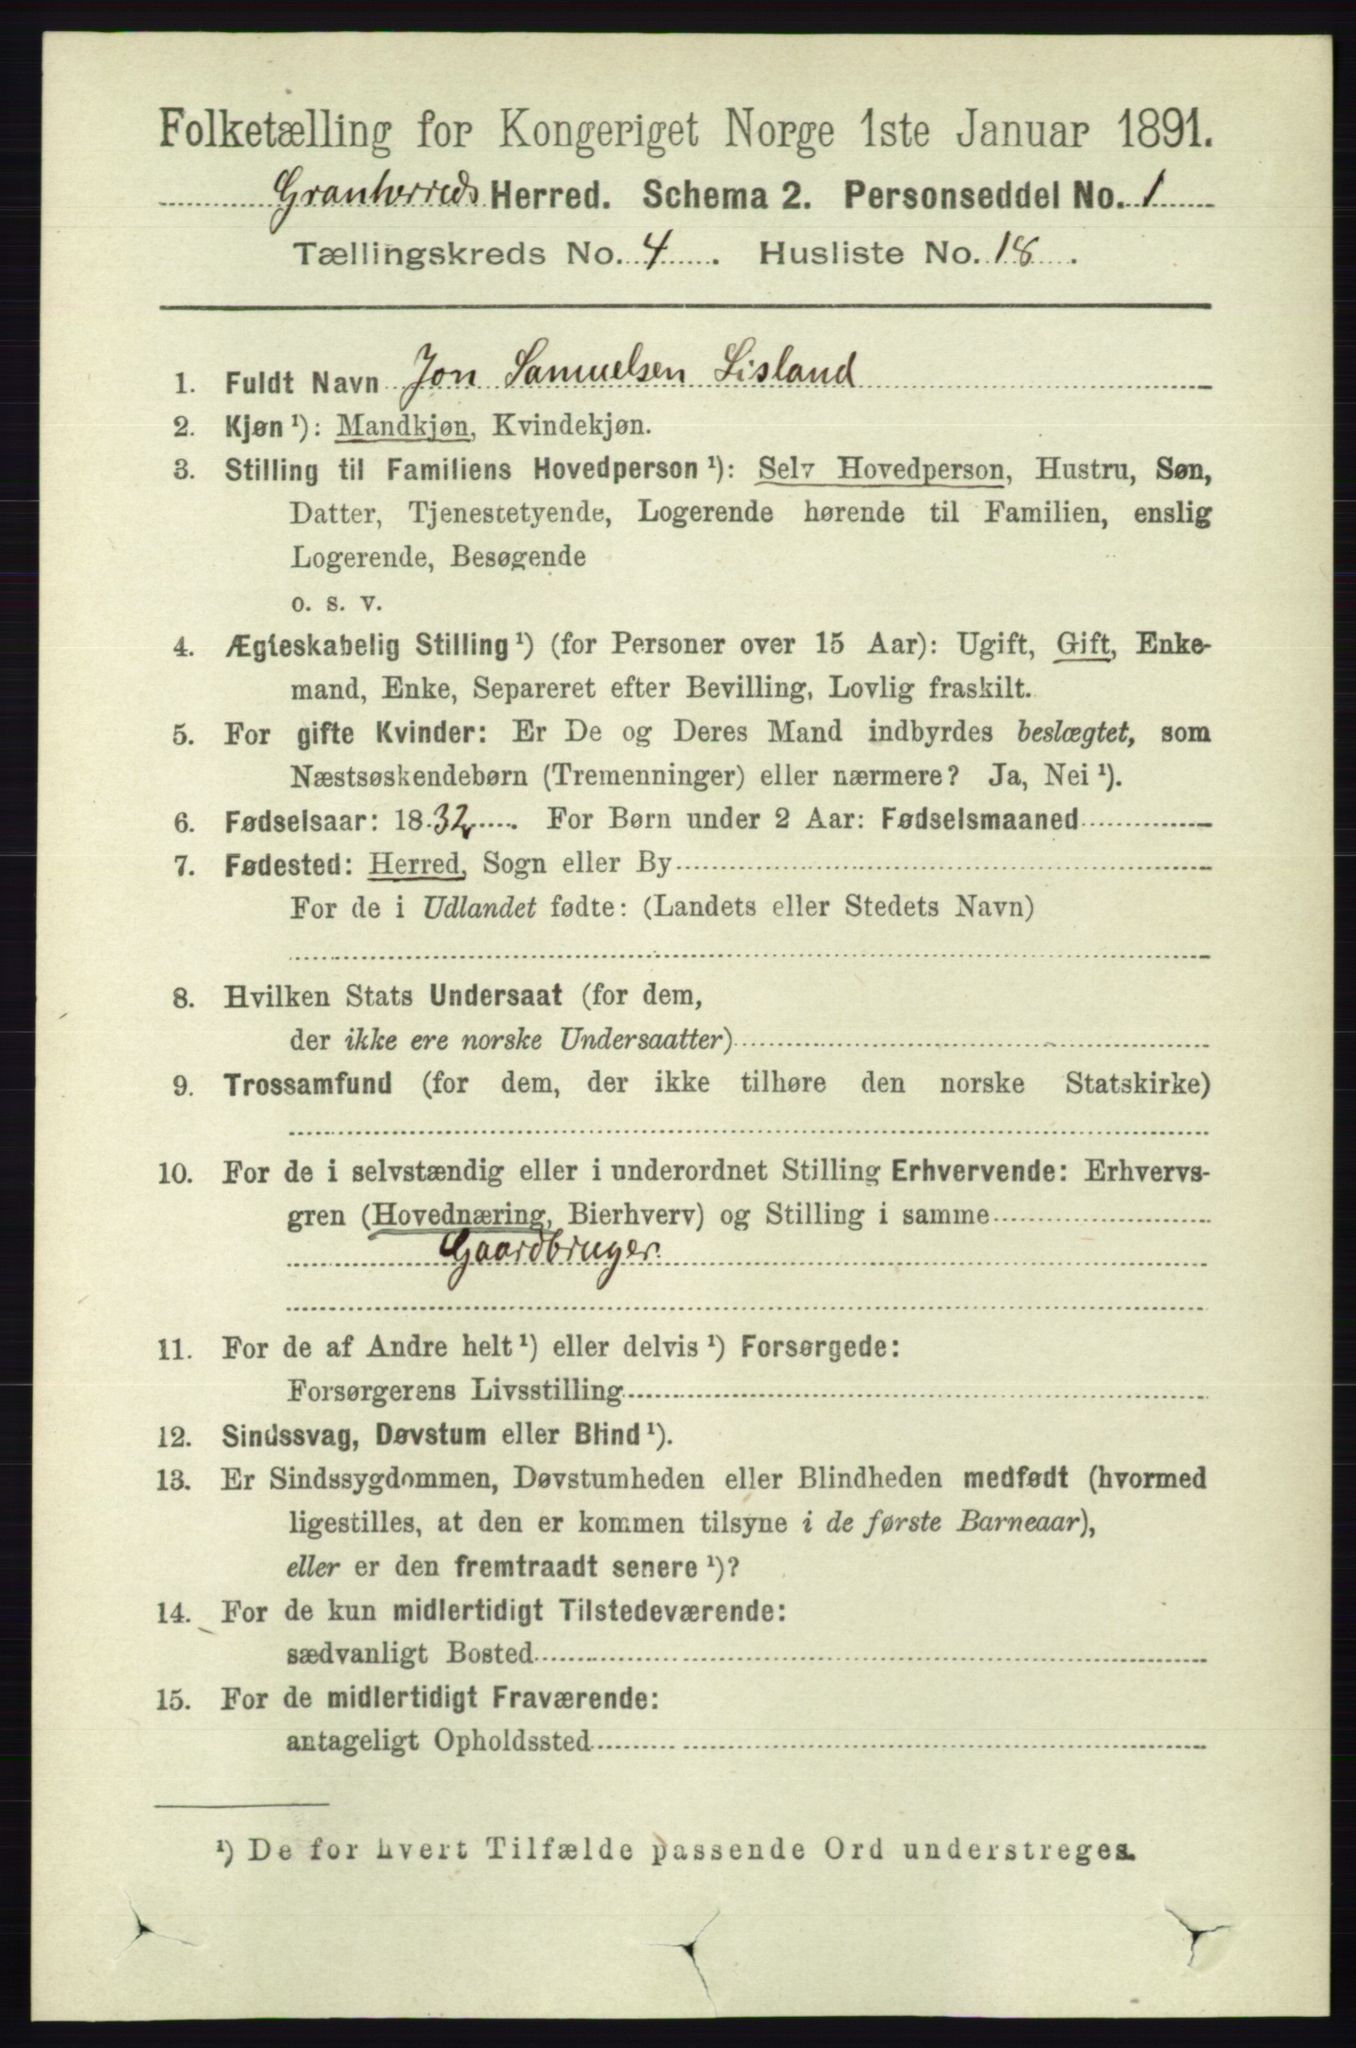 Folketælling for Kongeriget Norge 1ste Januar 1891.
Granherreds Herred. Schema 2. Personseddel No. 1
Tællingskreds No. 4. Husliste No. 18.
1. Fuldt Navn Jon Samuelsen Lisland
2. Kjøn ¹): Mandkjøn, Kvindekjøn.
3. Stilling til Familiens Hovedperson ¹): Selv Hovedperson, Hustru, Søn,
Datter, Tjenestetyende, Logerende hørende til Familien, enslig
Logerende, Besøgende
o. s. v.
4. Ægteskabelig Stilling ¹) (for Personer over 15 Aar): Ugift, Gift, Enke-
mand, Enke, Separeret efter Bevilling, Lovlig fraskilt.
5. For gifte Kvinder: Er De og Deres Mand indbyrdes beslægtet, som
Næstsøskendebørn (Tremenninger) eller nærmere? Ja, Nei ¹).
6. Fødselsaar: 1832. For Børn under 2 Aar: Fødselsmaaned
7. Fødested: Herred, Sogn eller By
For de i Udlandet fødte: (Landets eller Stedets Navn)
8. Hvilken Stats Undersaat (for dem,
der ikke ere norske Undersaatter)
9. Trossamfund (for dem, der ikke tilhøre den norske Statskirke)
10. For de i selvstændig eller i underordnet Stilling Erhvervende: Erhvervs-
gren (Hovednæring, Bierhverv) og Stilling i samme
Gaardbruger.
11. For de af Andre helt ¹) eller delvis ¹) Forsørgede:
Forsørgerens Livsstilling
12. Sindssvag, Døvstum eller Blind ¹).
13. Er Sindssygdommen, Døvstumheden eller Blindheden medfødt (hvormed
ligestilles, at den er kommen tilsyne i de første Barneaar),
eller er den fremtraadt senere ¹)?
14. For de kun midlertidigt Tilstedeværende:
sædvanligt Bosted
15. For de midlertidigt Fraværende:
antageligt Opholdssted
¹) De for hvert Tilfælde passende Ord understreges.